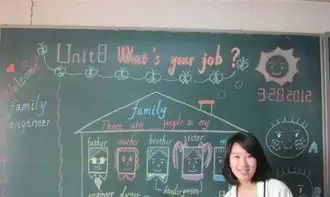 Unit 8 What's your job?
Welcome
3.28.2012
family
engineer
family
There are people in my
father mother brother sister
engineer doctor